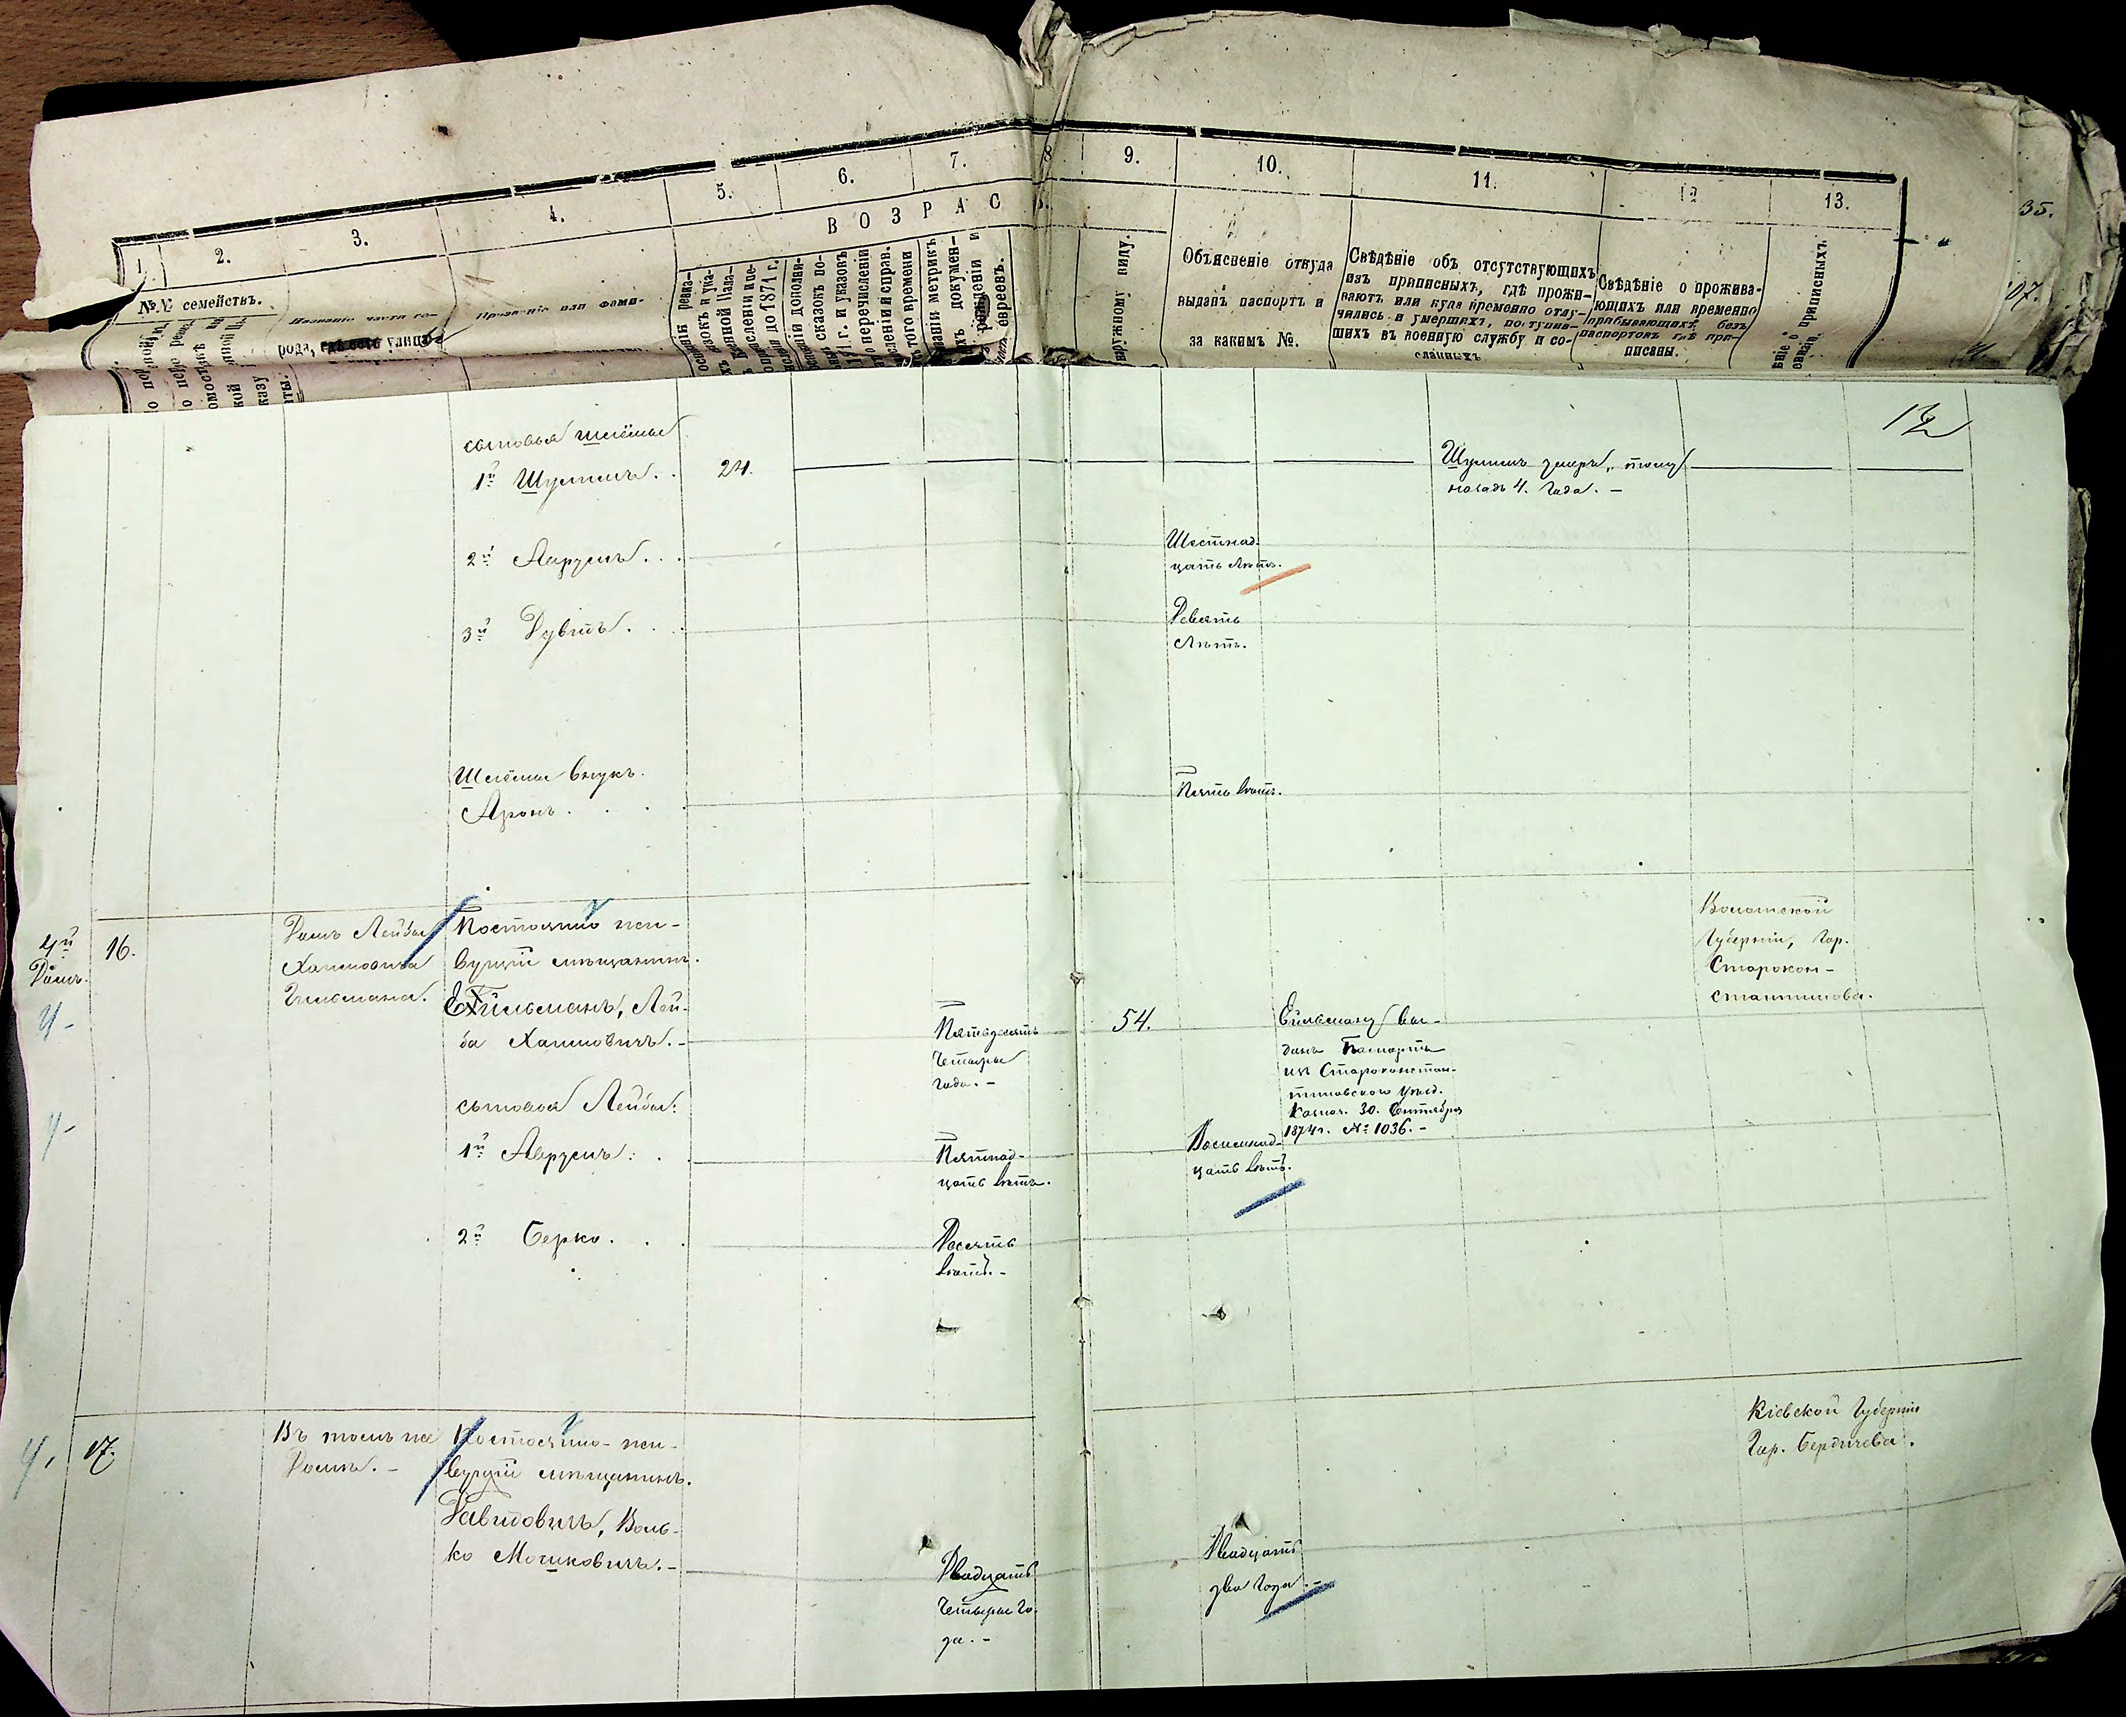 1 2. 3. 4. 5. 6. 7. 8 9. 10. 11. 12 13.
35.
ВОЗРАС
№№ семействъ.
Названіе части го-
рода, где есть улицъ
Прозваніе или фами-
евреевъ.
наружному виду.
Объясненіе откуда
выданъ паспортъ и
за какимъ №.
Свѣдѣніе объ отсутствующихъ
изъ приписныхъ, гдѣ прожи-
ваютъ или куда временно отлу-
чились и умершихъ, поступив-
шихъ въ военную службу и со-
сланныхъ
Свѣдѣніе о прожива-
ющихъ или временно
пребывающихъ безъ
паспортовъ гдѣ при-
писаны.
приписныхъ.
107.
12
сыновья Шлёмы
1й Шулимъ. 24. Шулимъ умеръ, тому
назадъ 4. года. -
2й Аврумъ. Шестнад-
цать лѣтъ.
3й Дувидъ. Девять
лѣтъ.
Шлёмы внукъ
Аронъ. Пять лѣтъ.
4й
Домъ.
16.
Домъ Лейбы
Хаимовича
Гильмана.
Постоянно жи-
вущій мѣщанинъ.
Ейльманъ, Лей-
ба Хаимовичъ. -
Пятьдесятъ
четыре
года. -
54.
Ейльману вы-
данъ Паспортъ
изъ Староконстан-
тиновского уѣзд.
Казнач. 30. Сентября
1874г. № 1036. -
Волынской
Губерніи, Гор.
Старокон-
стантинова.
сыновья Лейбы:
1й Аврумъ: Пятнад-
цать лѣтъ.
Восемнад-
цать лѣтъ.
2й Берко. Десять
лѣтъ. -
17.
Въ томъ же
Домѣ. -
Постоянно жи-
вущій мѣщанинъ.
Давидовичъ, Воль-
ко Мошковичъ. -
Двадцать
четыре го-
да. -
Двадцать
два года. -
Кіевской Губерніи
Гор. Бердичева.